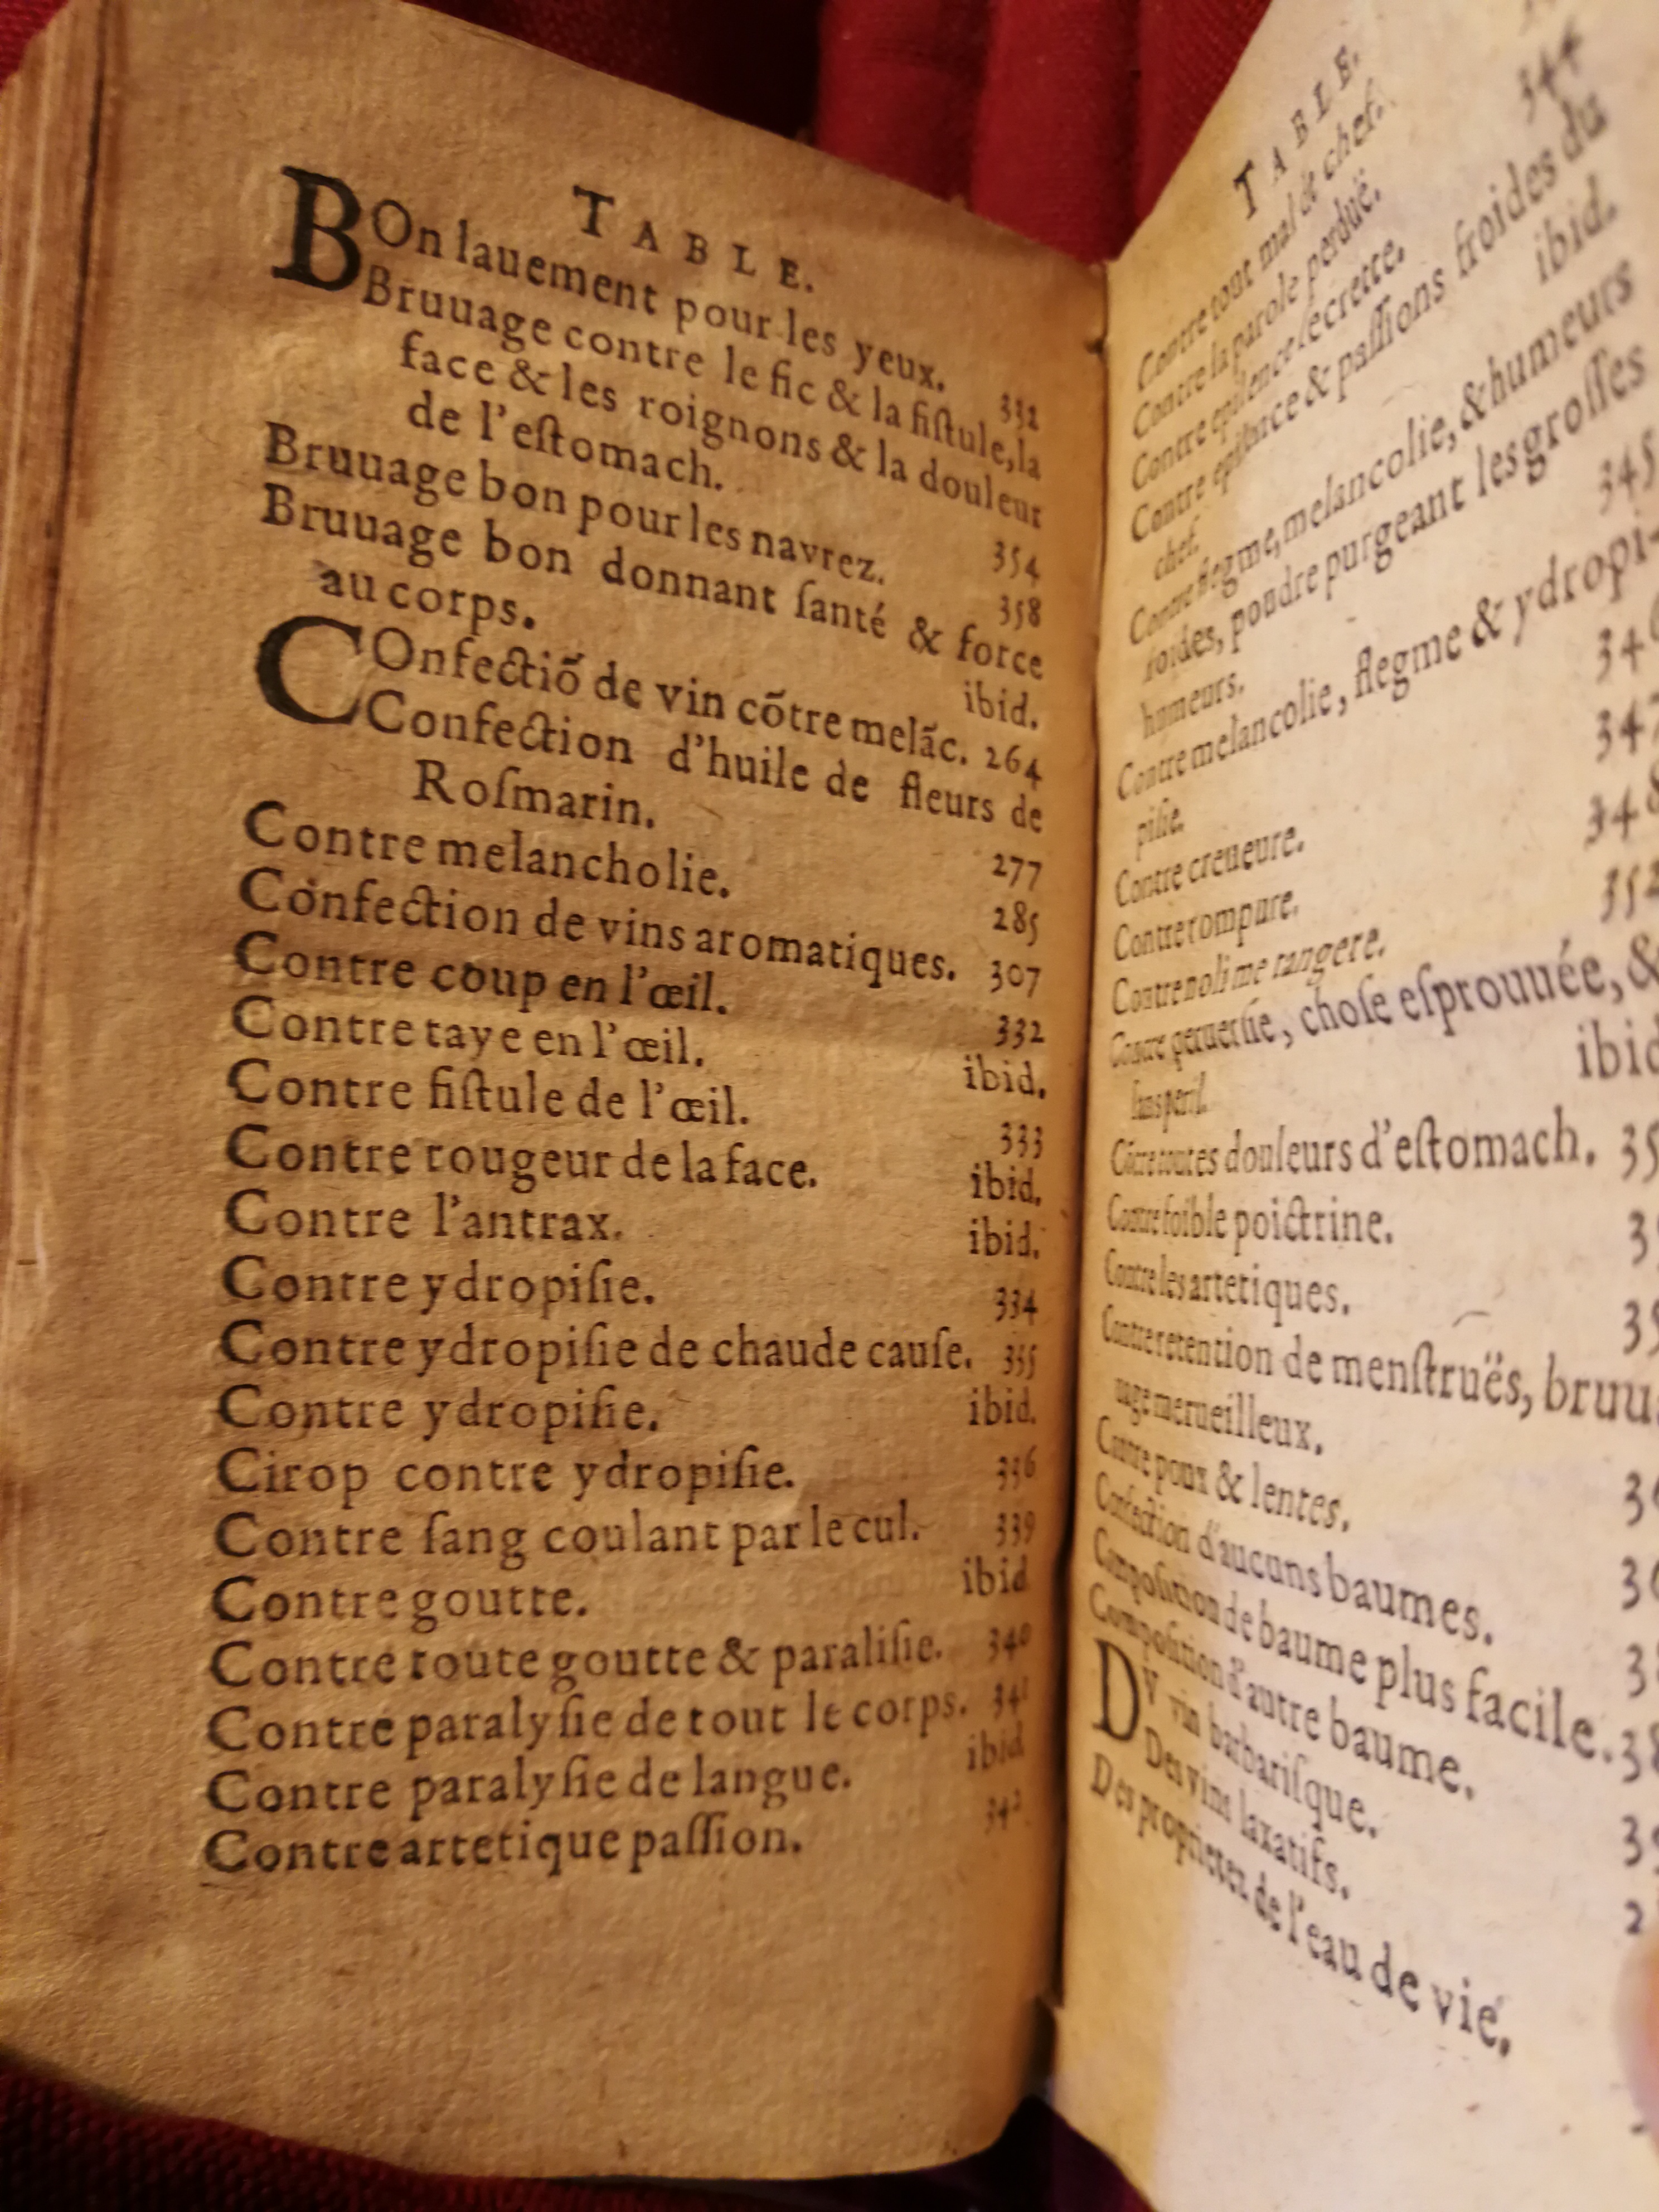 TABLE.
BOn lauement pour les yeux. 332
Bruuage contre le fic & la fiſtule, la
face & les roignons & la douleur
de l'eſtomach. 354
Bruuage bon pour les navrez. 358
Bruuage bon donnant ſanté & force
au corps. ibid.
COnfectiõ de vin cõtre melãc. 264
Confection d'huile de fleurs de
Roſmarin. 277
Contre melancholie. 285
Confection de vins aromatiques. 307
Contre coup en l'œil. 332
Contre taye en l'œil. ibid.
Contre fiſtule de l'œil. 333
Contre rougeur de la face. ibid.
Contre l'antrax. ibid.
Contre ydropiſie. 334
Contre ydropiſie de chaude cauſe. 335
Contre ydropiſie. ibid.
Cirop contre ydropiſie. 336
Contre ſang coulant par le cul. 339
Contre goutte. ibid
Contre toute goutte & paraliſie. 340
Contre paralyſie de tout le corps. 341
Contre paralyſie de langue. ibid
Contre artetique paſſion. 342
TABLE.
Contre tout mal de chef.
Contre la parole perduë. 344
Contre epilence ſecrette.
Contre & paſſions froides du
chef. ibid.
Contre flegme, melancolie, & humeurs
froides, poudre purgeant les groſſes
humeurs. 345
Contre melancolie, flegme & ydropi-
piſie.
Contre creueure. 347
Contre rompure. 348
Contre noli me tangere. 352
Contre , choſe eſprouuée, &
ſans peril. ibid
Cõtre toutes douleurs d'eſtomach.
Contre foible poictrine.
Contre les artetiques.
Contre retention de menſtruës, bruu
age merueilleux.
Contre poux & lentes.
Confection d'aucuns baumes.
Compoſition de baume plus facile.
Compoſition d'autre baume.
DV vin barbariſque.
Des vins laxatifs.
Des proprietez de l'eau de vie.